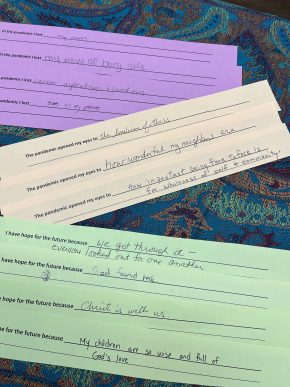 In the pandemic I lost my mom
In the pandemic I lost my view of being safe
In the pandemic I lost career expectations & loved ones
In the pandemic I lost time w/ my
The pandemic opened my eyes to the kindness of others
The pandemic opened my eyes to how wonderful my neighbors are
The pandemic opened my eyes to how important being face to face is
for wholeness of self & community
I have hope for the future because We got through it -
everyone looked out for one another
have hope for the future because God found me
have hope for the future because Christ is with us.
hope for the future because My children are so wise and full of
God's love